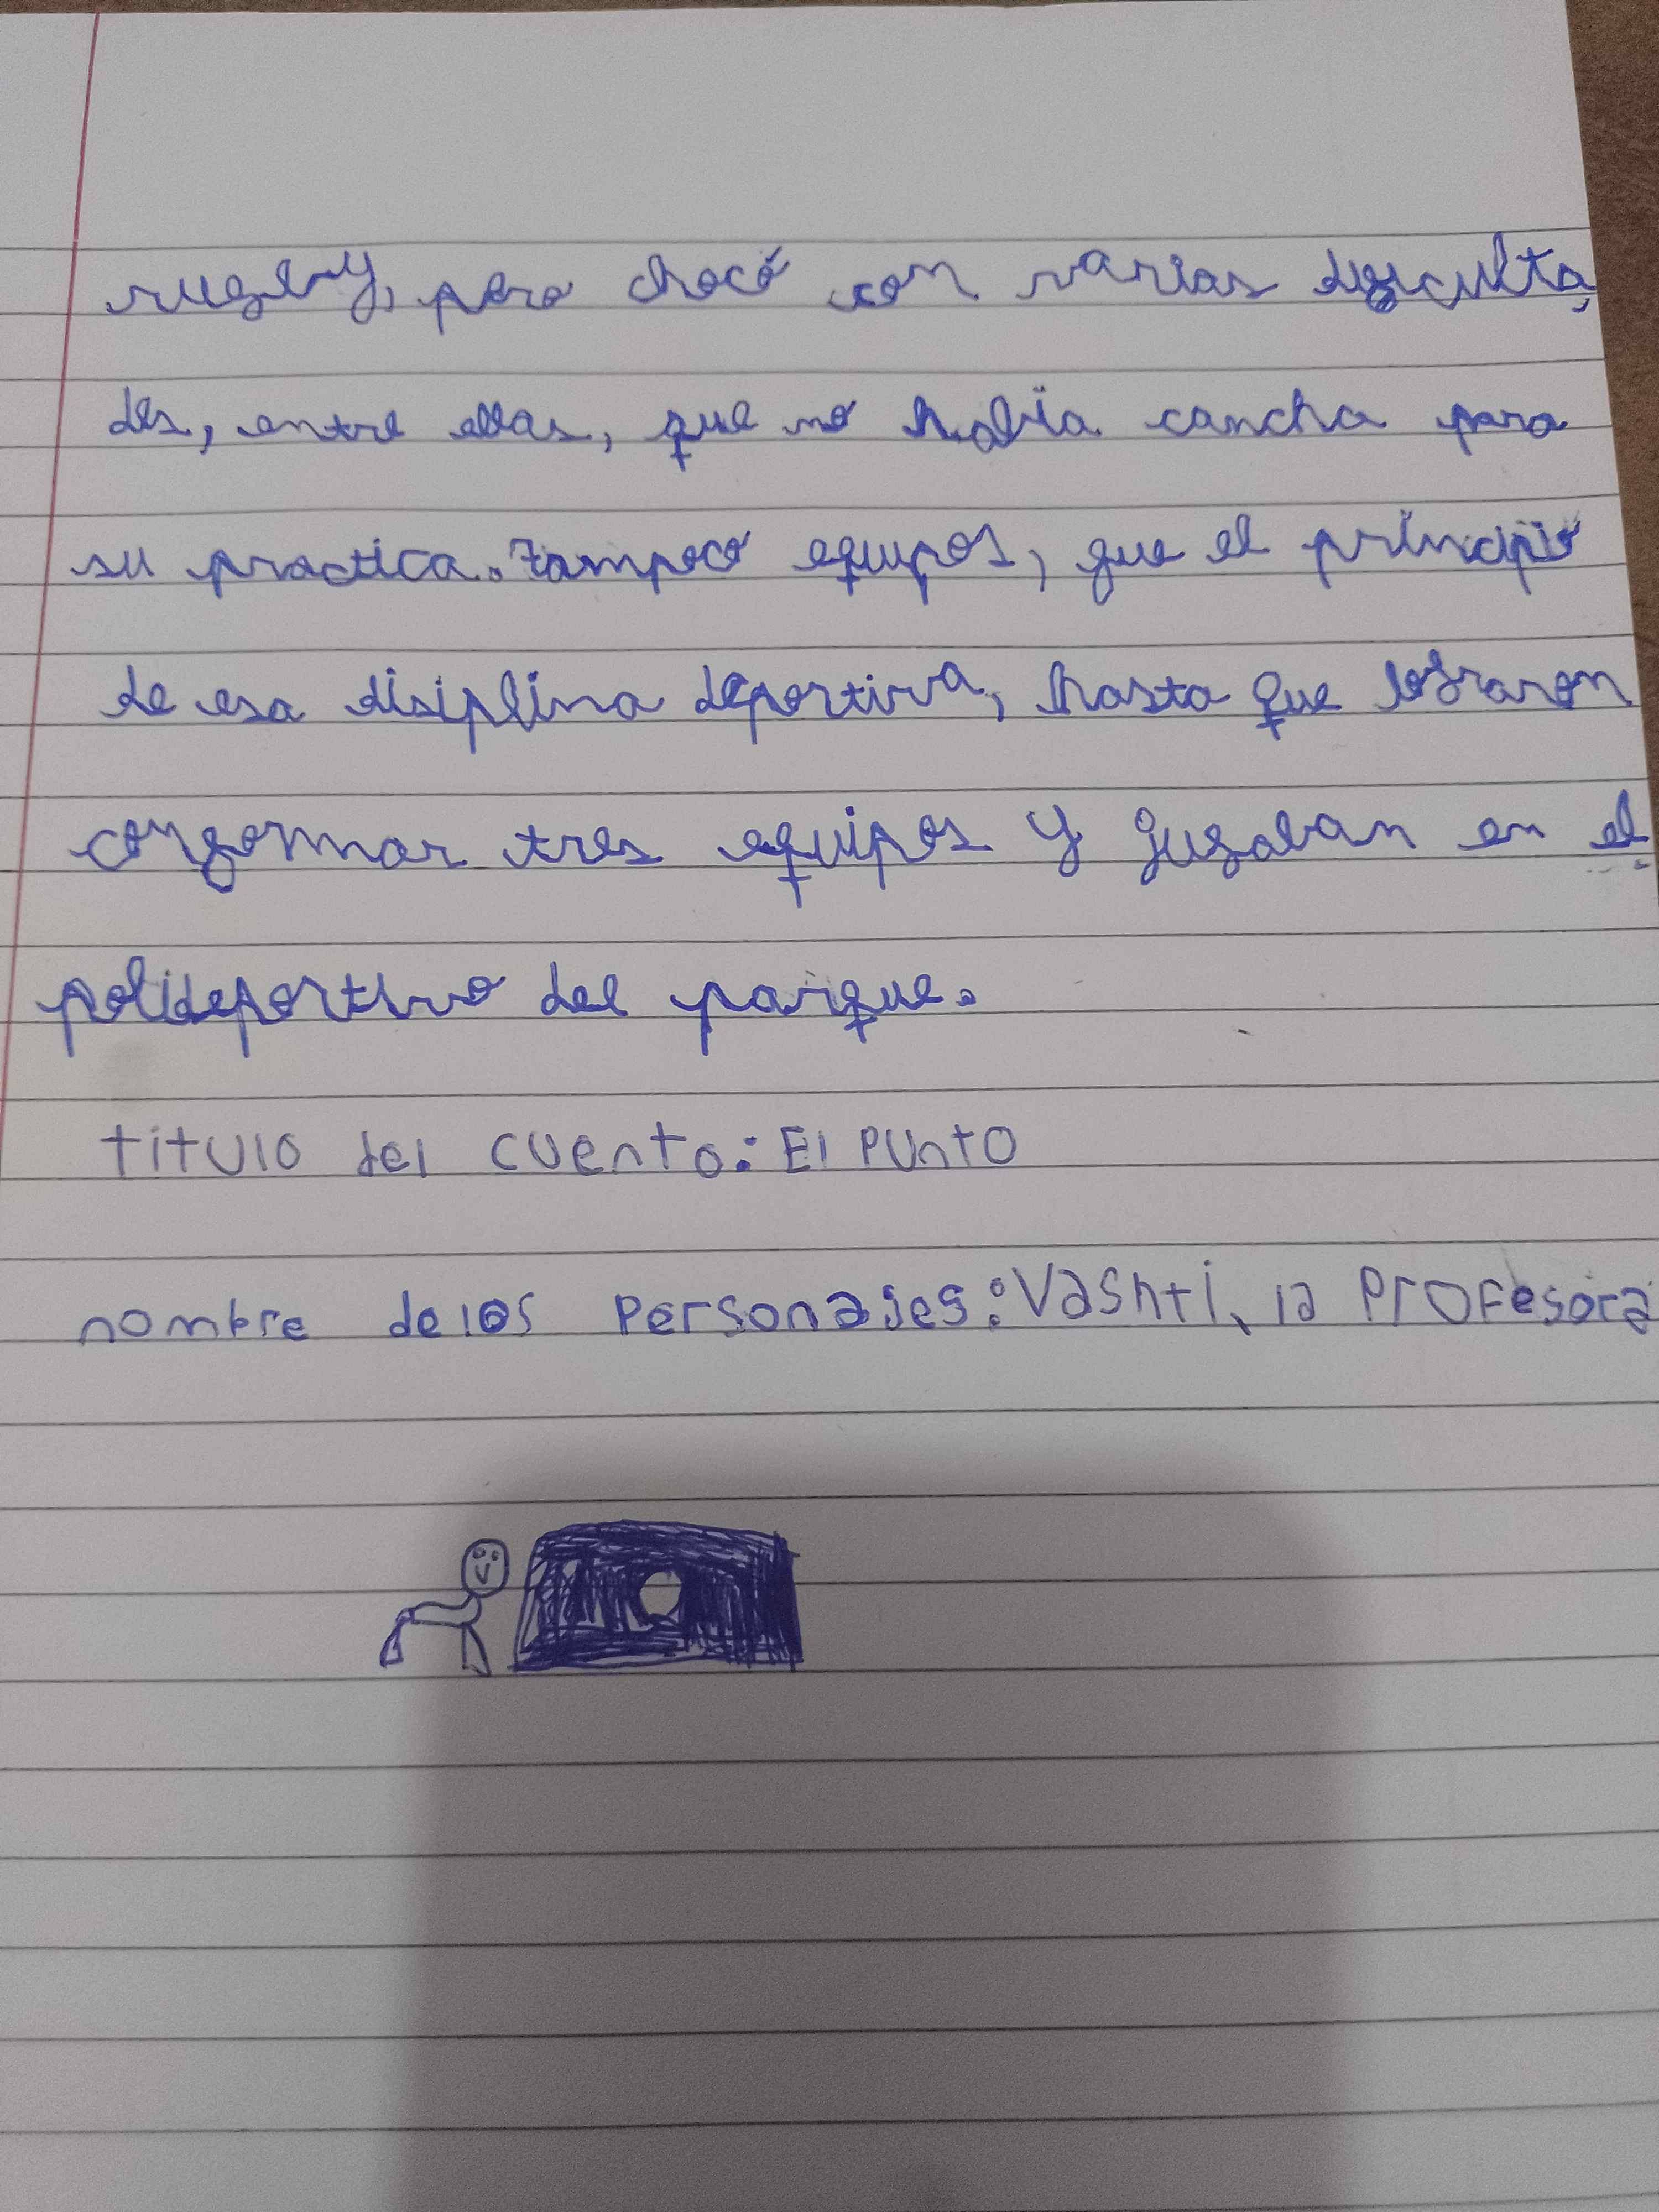 rugby, pero chocó con varias dificulta
des, entre ellas, que no había cancha para
su practica. tampoco equipos, que el principio
de esa disiplina deportiva, hasta que lograron
conformar tres equipos y jugaban en el
polideportivo del parque.
titulo del cuento: El Punto
nombre de los Personajes: Vashti, la Profesora